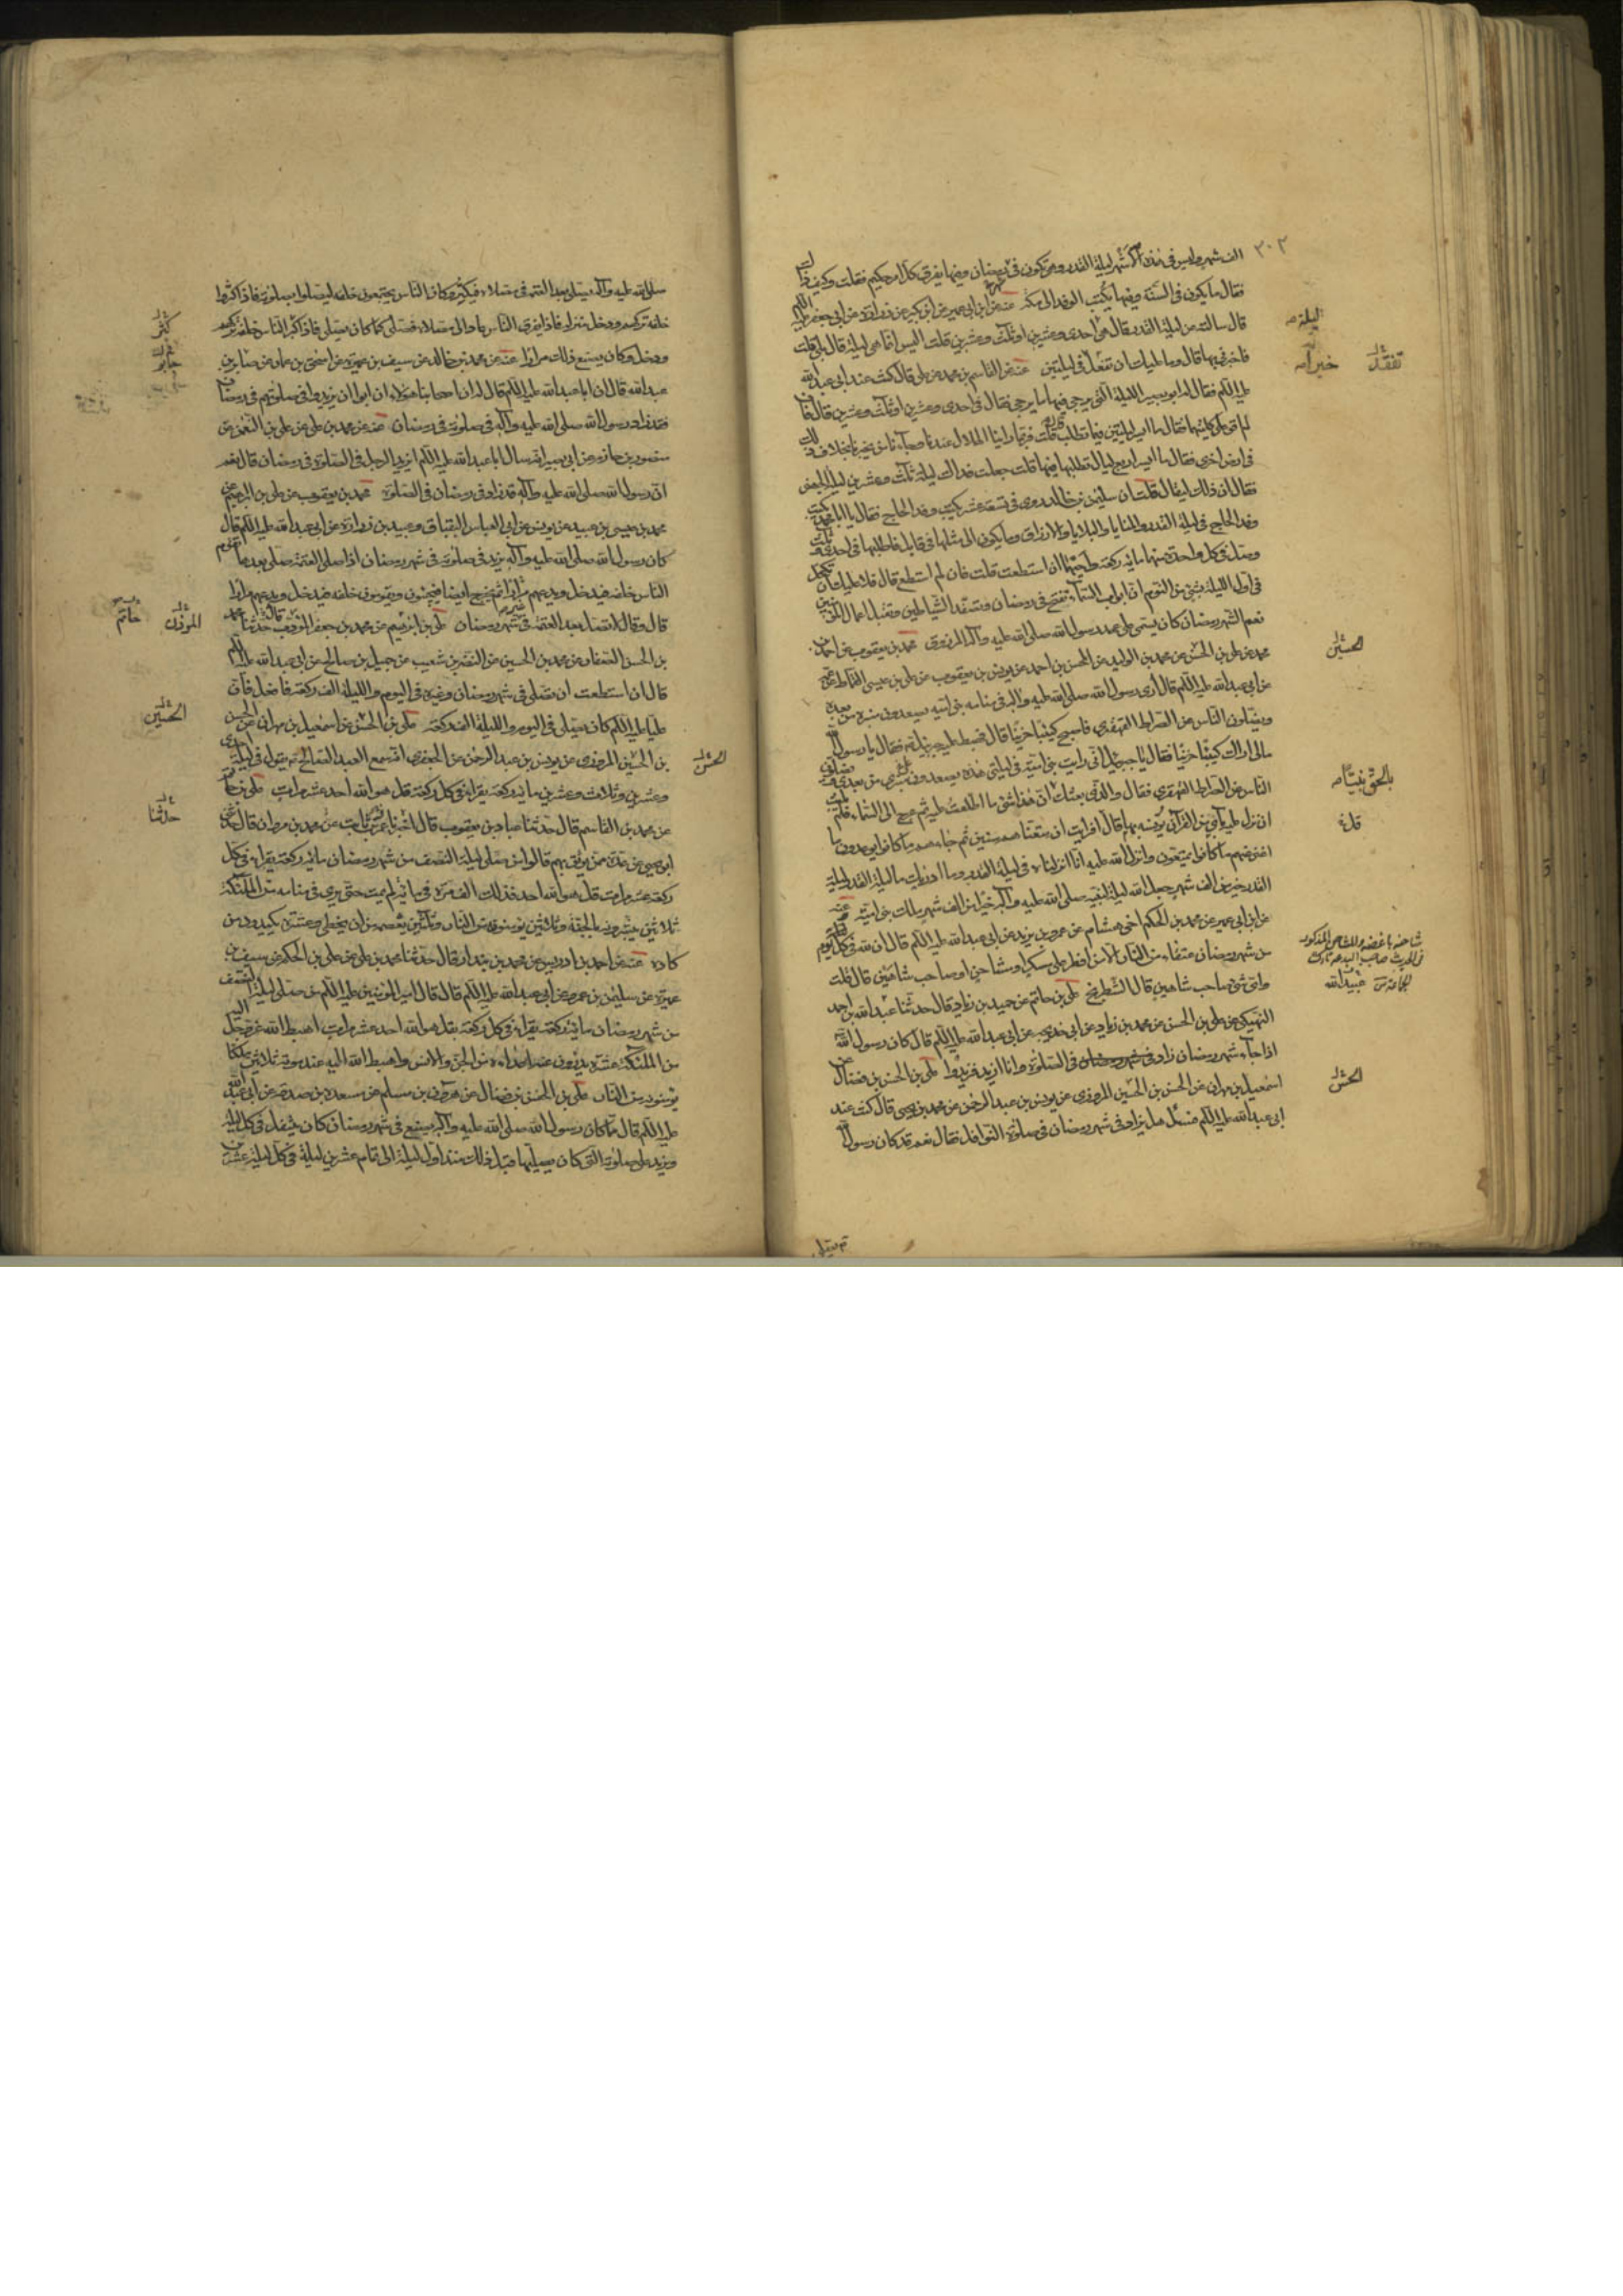 ٣٠٢
الف شهر وليس في هذه الاشهر ليلة القدر وهي تكون في رمضان وفيها يفرق كل امر حكيم فقلت وكيف ذلك
فقال ما يكون في السنة وفيها يكتب الوفد الى مكة عنه عن ابن ابي عمير عن ابن بكير عن زرارة عن ابي جعفر عليه السلم
قال سالته عن ليلة القدر قال هي احدى وعشرين او ثلث وعشرين قلت اليس انما هي ليلة قال بلى قلت
فاخبرني بها قال وما عليك ان تفعل في ليلتين عنه عن القاسم بن محمد عن علي قال كنت عند ابي عبد الله
عليه السلم فقال له ابو بصير الليلة التي يرجى فيها ما يرجى فقال في احدى وعشرين او ثلث وعشرين قال فان
لم اقو على كلتيهما فقال ما ايسر ليلتين فيما تطلب قلت فربما راينا الهلال عندنا وجآءنا من يخبرنا بخلاف ذلك
في ارض اخرى فقال ما ايسر اربع ليال تطلبها فيها قلت جعلت فداك ليلة ثلث وعشرين ليلة الجهني
فقال ان ذلك ليقال قلت ان سليمن بن خالد روى في تسعة عشر يكتب وفد الحاج فقال يا ابا محمد يكتب
وفد الحاج في ليلة القدر والمنايا والبلايا والارزاق وما يكون الى مثلها في قابل فاطلبها في احدى وثلث
وصل في كل واحدة منهما مائة ركعة واحيهما ان استطعت قلت فان لم استطع قال فلا عليك ان تكتحل
في اول الليلة بشئ من النوم ان ابواب السمآء تفتح في رمضان وتصفد الشياطين وتقبل اعمال المؤمنين
نعم الشهر رمضان كان يسمى على عهد رسول الله صلى الله عليه وآله المرزوق محمد بن يعقوب عن احمد بن
محمد عن علي بن الحسن عن محمد بن الوليد عن الحسن بن احمد عن يونس بن يعقوب عن علي بن عيسى القماط عن عمه
عن ابي عبد الله عليه السلم قال أري رسول الله صلى الله عليه وآله في منامه بني امية يصعدون منبره من بعده
ويضلون الناس عن الصراط القهقرى فاصبح كئيبا حزينا قال فهبط عليه جبرئيل فقال يا رسول الله
مالي اراك كئيبا حزينا فقال يا جبرئيل اني رايت بني امية في ليلتي هذه يصعدون منبري من بعدي ويضلون
الناس عن الصراط القهقرى فقال والذي بعثك ان هذا شئ ما اطلعت عليه ثم عرج الى السمآء فلم يلبث
ان نزل عليه بآي من القرآن يؤنسه بها قال افرايت ان متعناهم سنين ثم جاءهم ما كانوا يوعدون ما
اغنى عنهم ما كانوا يمتعون وانزل الله عليه انا انزلناه في ليلة القدر وما ادريك ما ليلة القدر ليلة
القدر خير من الف شهر جعل الله ليلة لنبيه صلى الله عليه وآله خيرا من الف شهر ملك بني امية عنه
عن ابن ابي عمير عن محمد بن الحكم اخي هشام عن عمر بن يزيد عن ابي عبد الله عليه السلم قال ان لله في كل يوم
من شهر رمضان عتقاء من النار الا من افطر على مسكر او مشاحن او صاحب شاهين قال قلت
واي شئ صاحب شاهين قال الشطرنج علي بن حاتم عن حميد بن زياد قال حدثنا عبد الله بن احمد
النهيكي عن علي بن الحسن عن محمد بن زياد عن ابي خديجة عن ابي عبد الله عليه السلم قال كان رسول الله
اذا جآء شهر رمضان زاد في الصلوة وانا ازيد فزيدوا علي بن الحسن بن فضال عن
اسمعيل بن مهران عن الحسن بن الحسين المروزي عن يونس بن عبد الرحمن عن محمد بن يحيى قال كنت عند
ابي عبد الله عليه السلم فسئل هل يزاد في شهر رمضان في صلوة النوافل فقال نعم قد كان رسول الله
ليلة
خبر
الحسين
قلة
شاحنه باغضه والمشاحن المذكور
في الحديث صاحب البدعة تارك
عبيد الله
الحسن
صلى الله عليه وآله يصلي بعد العتمة في مصلاه فيكثر وكان الناس يجتمعون خلفه ليصلوا بصلوته فاذا كثروا
خلفه تركهم ودخل منزله فاذا تفرق الناس عاد الى مصلاه فصلى كما كان يصلي فاذا كثر الناس خلفه تركهم
ودخل وكان يصنع ذلك مرارا عنه عن محمد بن خالد عن سيف بن عميرة عن اسحق بن عمار عن صابر بن
عبد الله قال ان ابا عبد الله عليه السلم قال له ان اصحابنا هؤلاء ابوا ان يزيدوا في صلوتهم في رمضان
وقد زاد رسول الله صلى الله عليه وآله في صلوته في رمضان عنه عن محمد بن علي عن علي بن النعمن عن
منصور بن حازم عن ابي بصير انه سال ابا عبد الله عليه السلم ايزيد الرجل في الصلوة في رمضان قال نعم
ان رسول الله صلى الله عليه وآله قد زاد في رمضان في الصلوة محمد بن يعقوب عن علي بن ابرهيم عن
محمد بن عيسى بن عبيد عن يونس عن ابي العباس البقباق وعبيد بن زرارة عن ابي عبد الله عليه السلم قال
كان رسول الله صلى الله عليه وآله يزيد في صلوته في شهر رمضان اذا صلى العتمة صلى بعدها فيقوم
الناس خلفه فيدخل ويدعهم ثم يخرج ايضا فيجيئون ويقومون خلفه فيدخل ويدعهم مرارا
قال وقال لا تصل بعد العتمة في غير شهر رمضان علي بن ابرهيم عن محمد بن جعفر المؤدب قال حدثنا محمد
بن الحسن الصفار عن محمد بن الحسين عن النضر بن شعيب عن جميل بن صالح عن ابي عبد الله عليه السلم
قال ان استطعت ان تصلي في شهر رمضان وغيره في اليوم والليلة الف ركعة فافعل فان
عليا عليه السلم كان يصلي في اليوم والليلة الف ركعة علي بن الحسن عن اسمعيل بن مهران عن الحسن
بن الحسين المروزي عن يونس بن عبد الرحمن عن الجعفري انه سمع العبد الصالح يقول في ليلة احدى
وعشرين وثلاث وعشرين مائة ركعة يقرا في كل ركعة قل هو الله احد عشر مرات علي بن حاتم
عن محمد بن القاسم قال حدثنا عباد بن يعقوب قال اخبرنا عمرو بن ثابت عن محمد بن مروان قال حدثني
ابو يحيى عن عدة ممن يوثق بهم قالوا من صلى ليلة النصف من شهر رمضان مائة ركعة يقرا في كل
ركعة عشر مرات قل هو الله احد فذلك الف مرة في مائة لم يمت حتى يرى في منامه من الملئكة
ثلاثين يبشرونه بالجنة وثلاثين يؤمنونه من النار وثلثين يعصمه من ان يخطئ وعشرة يكيدون من
كاده عنه عن احمد بن ادريس عن محمد بن بندار قال حدثنا محمد بن علي عن علي بن الحكم عن سيف بن
عميرة عن سليمن بن عمرو عن ابي عبد الله عليه السلم قال قال امير المؤمنين عليه السلم من صلى ليلة النصف
من شهر رمضان مائة ركعة يقرا في كل ركعة بقل هو الله احد عشر مرات اهبط الله عز وجل اليه
من الملئكة عشرة يدرؤن عنه اعداءه من الجن والانس واهبط الله اليه عند موته ثلاثين ملكا
يؤمنونه من النار علي بن الحسن بن فضال عن هرون بن مسلم عن مسعدة بن صدقة عن ابي عبد الله
عليه السلم قال مما كان رسول الله صلى الله عليه وآله يصنع في شهر رمضان كان يتنفل في كل ليلة
ويزيد على صلوته التي كان يصليها قبل ذلك منذ اول ليلة الى تمام عشرين ليلة في كل ليلة عشرين
كثر
جابر
المؤذن
حاتم
الحسين
حدثنا
الحسن